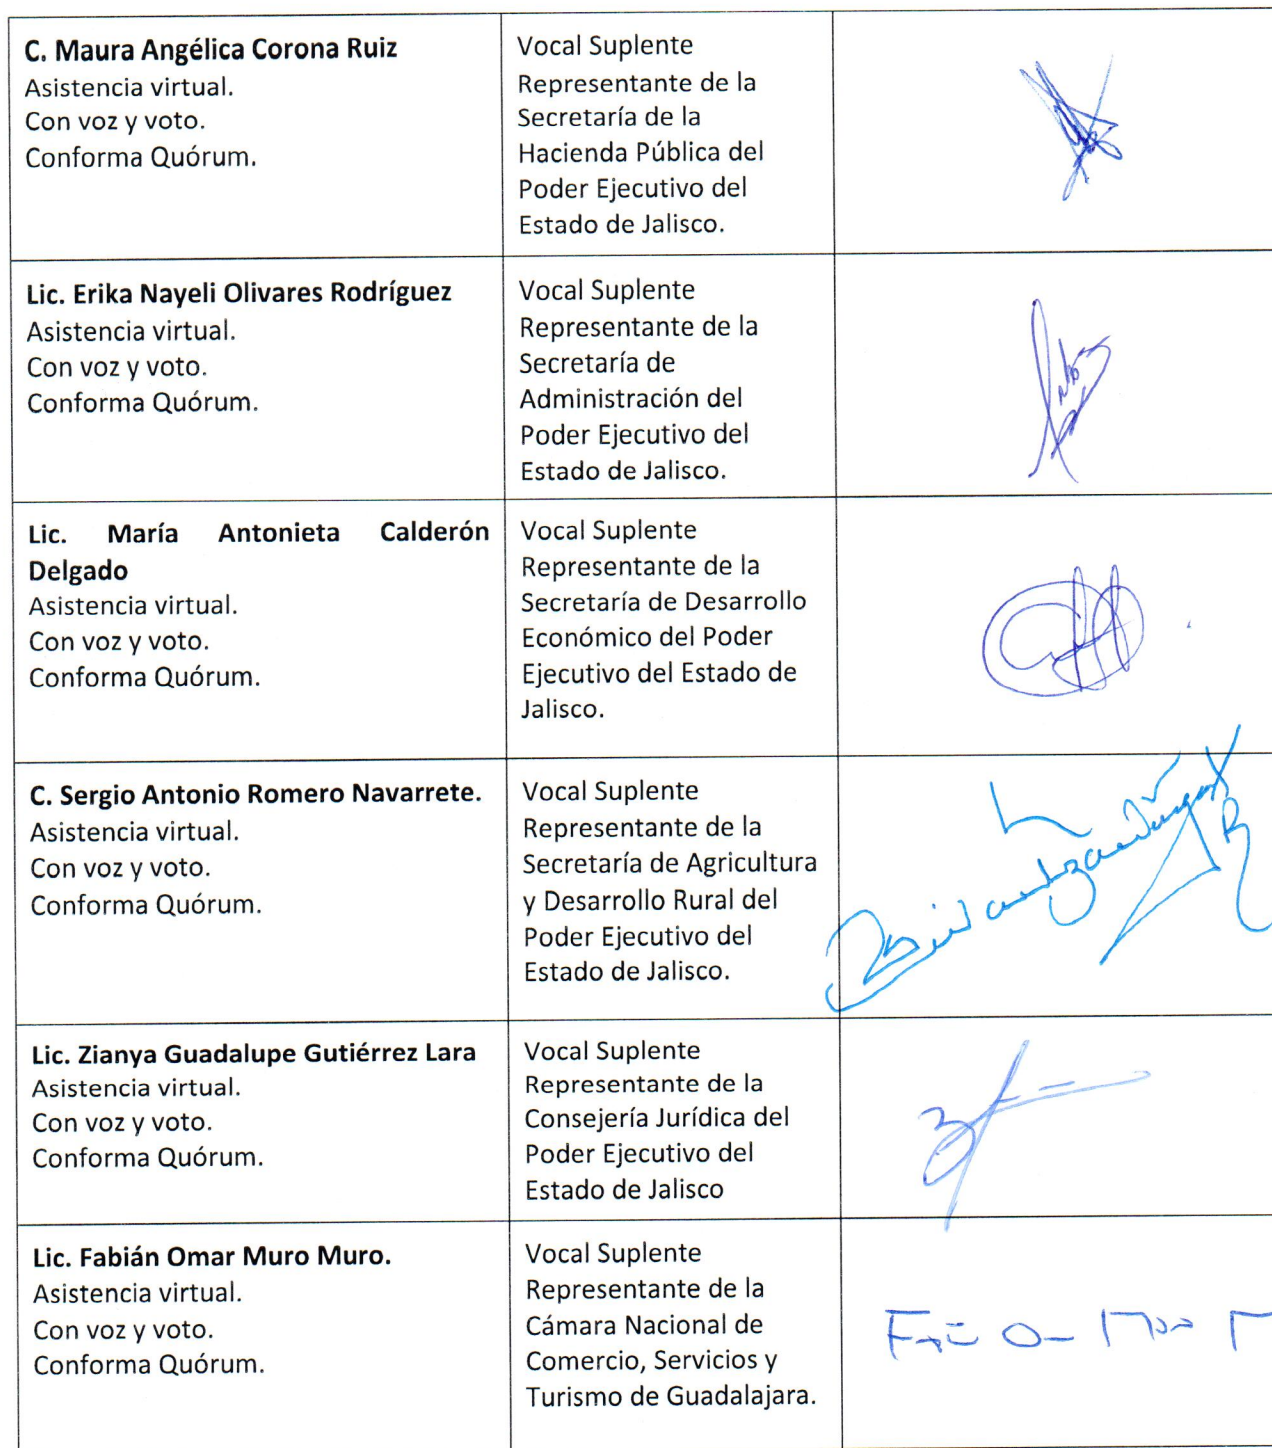 C. Maura Angélica Corona Ruiz
Asistencia virtual.
Con voz y voto.
Conforma Quórum.
Vocal Suplente
Representante de la
Secretaría de la
Hacienda Pública del
Poder Ejecutivo del
Estado de Jalisco.
Lic. Erika Nayeli Olivares Rodríguez
Asistencia virtual.
Con voz y voto.
Conforma Quórum.
Vocal Suplente
Representante de la
Secretaría de
Administración del
Poder Ejecutivo del
Estado de Jalisco.
Lic. María Antonieta Calderón
Delgado
Asistencia virtual.
Con voz y voto.
Conforma Quórum.
Vocal Suplente
Representante de la
Secretaría de Desarrollo
Económico del Poder
Ejecutivo del Estado de
Jalisco.
C. Sergio Antonio Romero Navarrete.
Asistencia virtual.
Con voz y voto.
Conforma Quórum.
Vocal Suplente
Representante de la
Secretaría de Agricultura
y Desarrollo Rural del
Poder Ejecutivo del
Estado de Jalisco.
Lic. Zianya Guadalupe Gutiérrez Lara
Asistencia virtual.
Con voz y voto.
Conforma Quórum.
Vocal Suplente
Representante de la
Consejería Jurídica del
Poder Ejecutivo del
Estado de Jalisco
Lic. Fabián Omar Muro Muro.
Asistencia virtual.
Con voz y voto.
Conforma Quórum.
Vocal Suplente
Representante de la
Cámara Nacional de
Comercio, Servicios y
Turismo de Guadalajara.